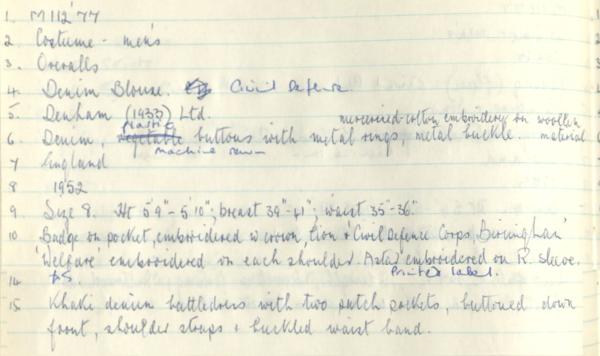 1. M112'77
2 Costume - men's
3. Overalls
4. Denim Blouse. Civil Defence
5. Denham (1933) Ltd.
mercerised cotton embroidery on woollen material
Plastic
6. Denim, vegetable buttons with metal rings, metal buckle
machine sewn
7 England
8 1952
9. Size 8. Ht 5'9"-5'10"; breast 39"-41"; waist 35"-36".
10 Badge on pocket, embroidered w crown, lion + 'Civil Defence Corps, Birmingham'
'Welfare' embroidered on each shoulder. A star embroidered on R. sleeve.
Printed label.
14
15 Khaki denim battledress with two patch pockets, buttoned down
front, shoulder straps + buckled waist band.